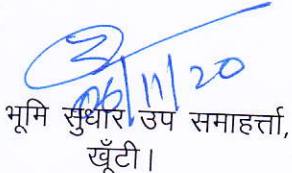 06/11/20
भूमि सुधार उप समाहर्त्ता,
खूँटी।